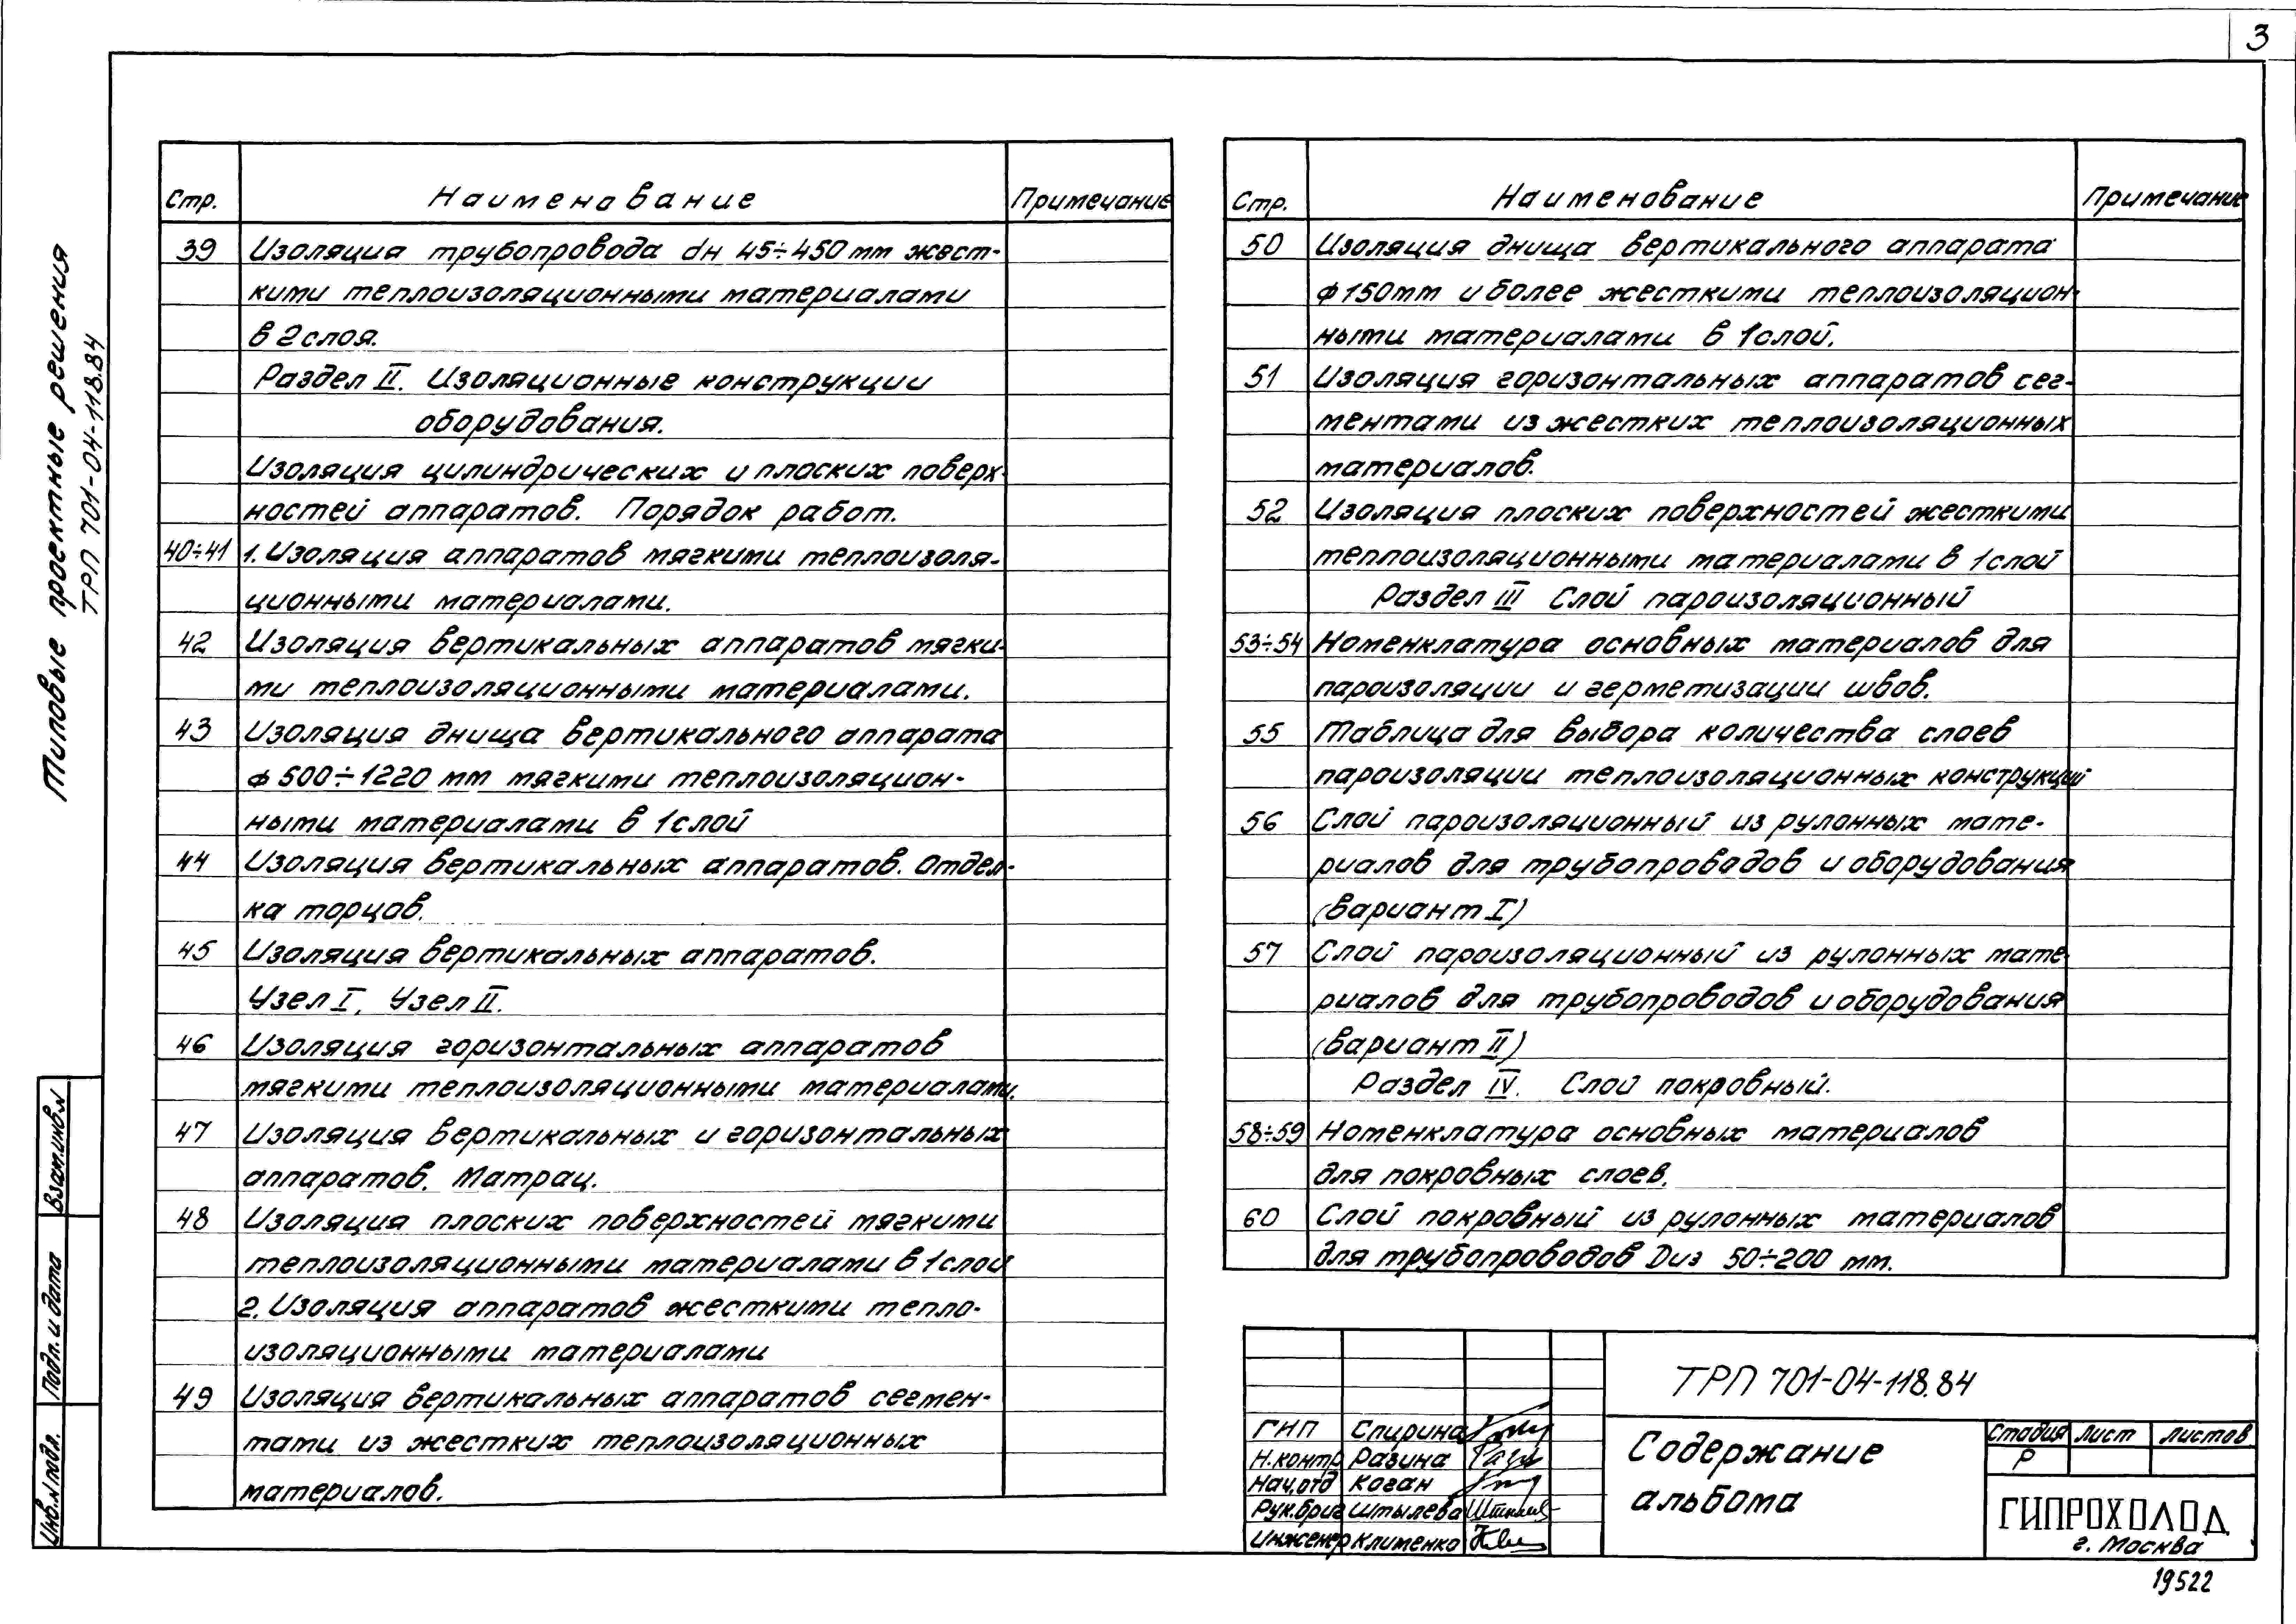 3
Типовые проектные решения
ТРП 701-04-118.84
Стр. Наименование Примечание
39 Изоляция трубопровода dн 45÷450 мм жест-
кими теплоизоляционными материалами
в 2 слоя.
Раздел II. Изоляционные конструкции
оборудования.
Изоляция цилиндрических и плоских поверх-
ностей аппаратов. Порядок работ.
40÷41 1. Изоляция аппаратов мягкими теплоизоля-
ционными материалами.
42 Изоляция вертикальных аппаратов мягки-
ми теплоизоляционными материалами.
43 Изоляция днища вертикального аппарата
ф 500÷1220 мм мягкими теплоизоляцион-
ными материалами в 1 слой
44 Изоляция вертикальных аппаратов. Отдел-
ка торцов.
45 Изоляция вертикальных аппаратов.
Узел I, Узел II.
46 Изоляция горизонтальных аппаратов
мягкими теплоизоляционными материалами.
47 Изоляция вертикальных и горизонтальных
аппаратов. Матрац.
48 Изоляция плоских поверхностей мягкими
теплоизоляционными материалами в 1 слой
2. Изоляция аппаратов жесткими тепло-
изоляционными материалами
49 Изоляция вертикальных аппаратов сегмен-
тами из жестких теплоизоляционных
материалов.
Стр. Наименование Примечание
50 Изоляция днища вертикального аппарата
ф 150мм и более жесткими теплоизоляцион-
ными материалами в 1 слой.
51 Изоляция горизонтальных аппаратов сег-
ментами из жестких теплоизоляционных
материалов.
52 Изоляция плоских поверхностей жесткими
теплоизоляционными материалами в 1 слой
Раздел III Слой пароизоляционный
53÷54 Номенклатура основных материалов для
пароизоляции и герметизации швов.
55 Таблица для выбора количества слоев
пароизоляции теплоизоляционных конструкций
56 Слой пароизоляционный из рулонных мате-
риалов для трубопроводов и оборудования
(вариант I)
57 Слой пароизоляционный из рулонных мате-
риалов для трубопроводов и оборудования
(вариант II)
Раздел IV. Слой покровный.
58÷59 Номенклатура основных материалов
для покровных слоев.
60 Слой покровный из рулонных материалов
для трубопроводов Dиз 50÷200 мм.
Взам.инв.N
Подп. и дата
Инв.N подл.
ТРП 701-04-118.84
ГИП Спирина
Н.контр Разина
Нач.отд Коган
Рук.бриг Штылева
Инженер Клименко
Содержание
альбома
Стадия Лист Листов
Р
ГИПРОХОЛОД
г. Москва
19522